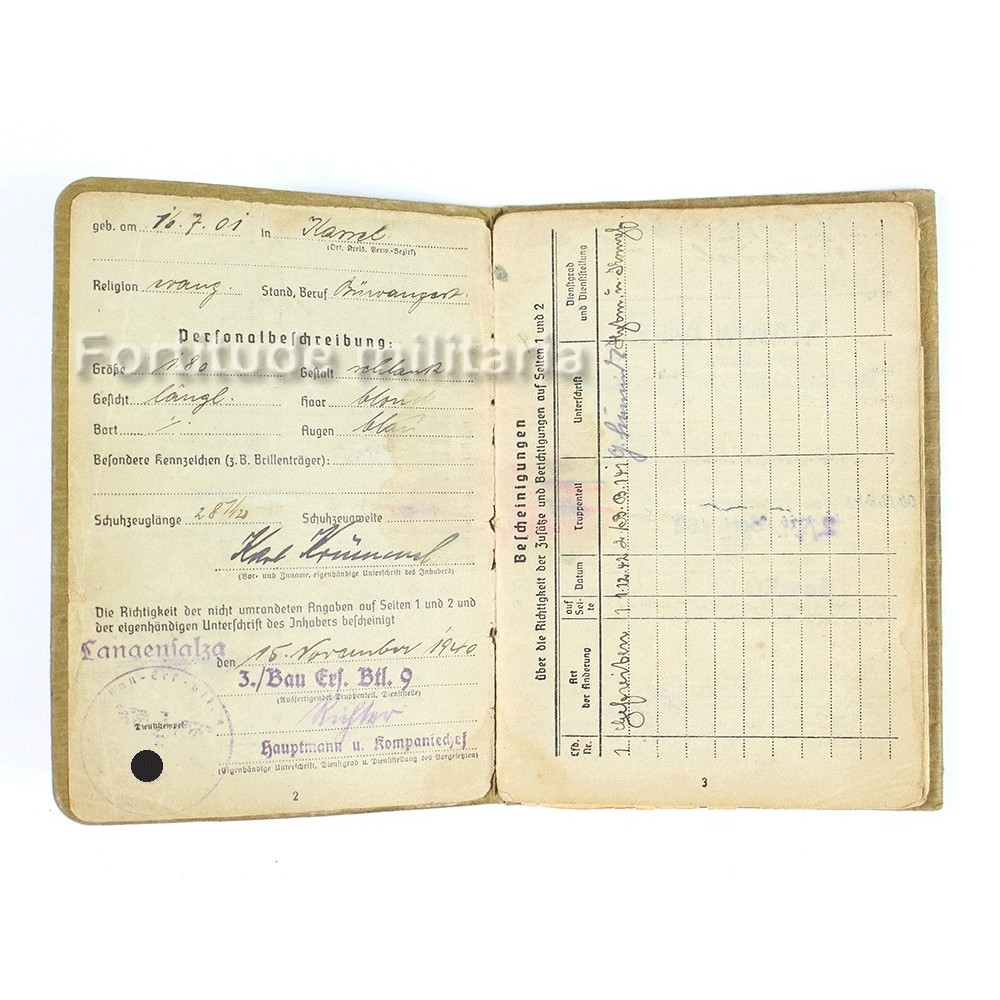 geb. am 16.7.01 in Kassel
(Ort, Kreis, Verw.-Bezirk)
Religion evang. Stand, Beruf Büroangest.
Personalbeschreibung:
Größe 180 Gestalt schlank
Gesicht längl. Haar blond
Bart ./. Augen blau
Besondere Kennzeichen (z. B. Brillenträger):
Schuhzeuglänge 28 Schuhzeugweite
Karl Krümmel
(Vor- und Zuname, eigenhändige Unterschrift des Inhabers)
Die Richtigkeit der nicht umrandeten Angaben auf Seiten 1 und 2 und
der eigenhändigen Unterschrift des Inhabers bescheinigt
Langensalza den 15. November 1940
3./Bau Ers. Btl. 9
(Ausfertigender Truppenteil, Dienststelle)
Richter
Dienststempel
Hauptmann u. Kompaniechef
(Eigenhändige Unterschrift, Dienstgrad u. Dienststellung des Vorgesetzten)
2
Fortitude militaria
Bescheinigungen
über die Richtigkeit der Zusätze und Berichtigungen auf Seiten 1 und 2
Lfd. Nr. Art der Änderung auf Seite Datum Truppenteil Unterschrift Dienstgrad und Dienststellung
1 Gefreiter 1 1.12.42
3